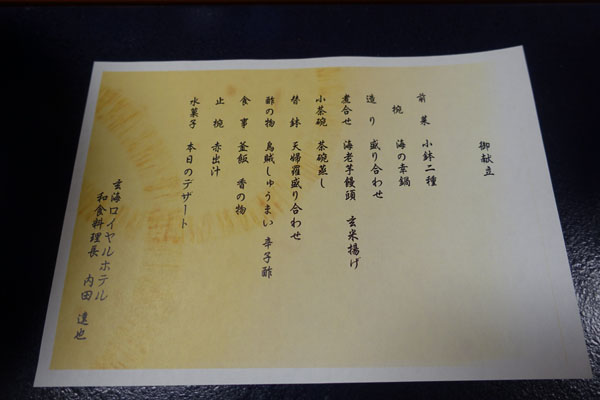 御献立
前菜 小鉢二種
椀 海の幸鍋
造り 盛り合わせ
煮合せ 海老芋饅頭 玄米揚げ
小茶碗 茶碗蒸し
替鉢 天婦羅盛り合わせ
酢の物 烏賊しゅうまい 辛子酢
食事 釜飯 香の物
止椀 赤出汁
水菓子 本日のデザート
玄海ロイヤルホテル
和食料理長 内田 達也